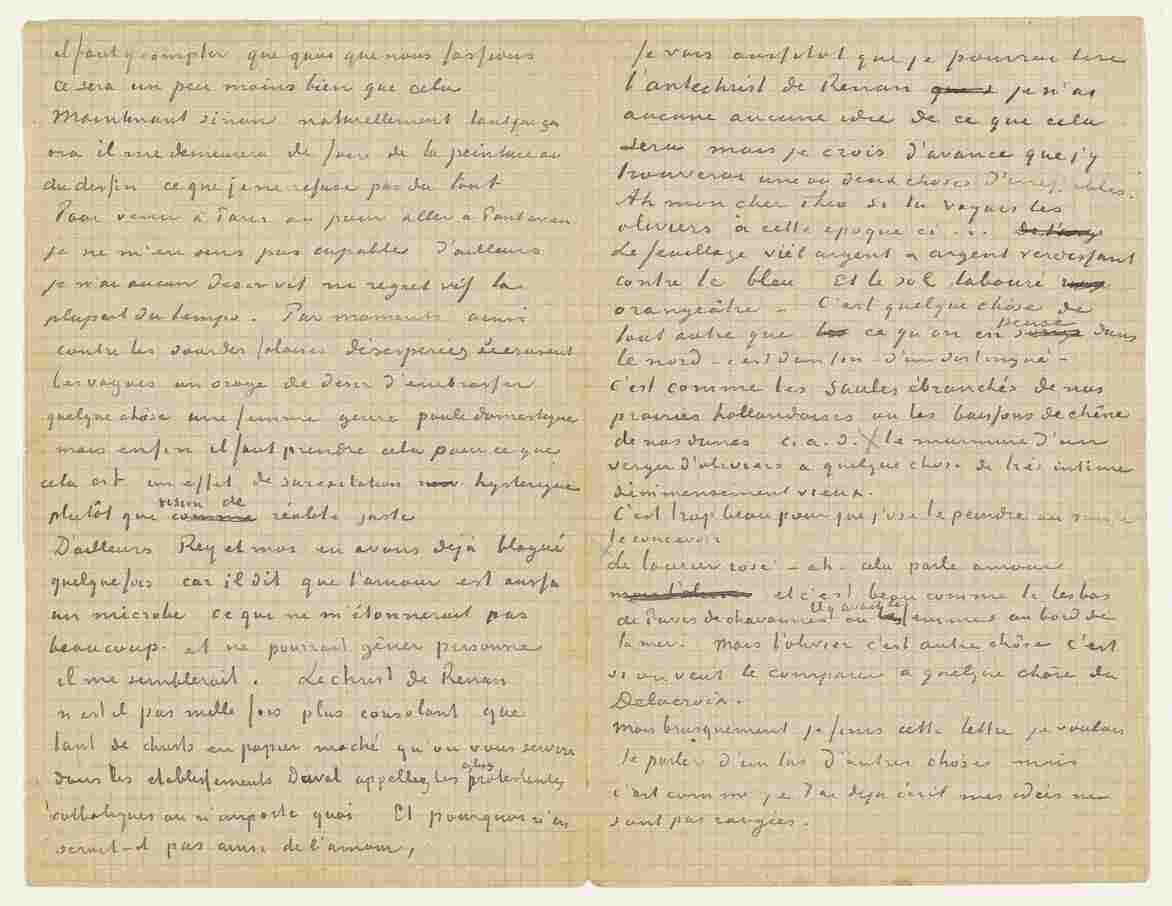 il faut y compter que quoi que nous fassions
ce sera un peu moins bien que cela
Maintenant sinon naturellement tant que ça
ira il me demeurera de faire de la peinture ou
du dessin ce que je ne refuse pas du tout
Pour venir à Paris ou pour aller à Pontaven
je ne m'en sens pas capable d'ailleurs
je n'ai aucun desir vif ni regret vif la
plupart du temps. Par moments ainsi
contre les sourdes falaises désesperées s'écrasent
les vagues un orage de desir d'embrasser
quelque chôse une femme genre poule domestique
mais enfin il faut prendre cela pour ce que
cela est un effet de surexcitation hysterique
plutôt que comme vision de réalité juste
D'ailleurs Rey et moi en avons dejà blagué
quelquefois car il dit que l'amour est aussi
un microbe ce que ne m'étonnerait pas
beaucoup. et ne pourrait gêner personne
il me semblerait. Le christ de Renan
n'est il pas mille fois plus consolant que
tant de christs en papier maché qu'on vous servira
dans les etablissements Duval appellés les eglises protestantes
catholiques ou n'importe quoi Et pourquoi n'en
serait-il pas ainsi de l'amour,
Je vais aussitot que je pourrai lire
l'antechrist de Renan je n'ai
aucune aucune idée de ce que cela
sera mais je crois d'avance que j'y
trouverai une ou deux choses
Ah mon cher Theo si tu voyais les
oliviers à cette epoque ci ...
Le feuillage vieil argent & argent verdissant
contre le bleu Et le sol labouré
orangeâtre – C'est quelque chôse de
tout autre que ce qu'on en pense dans
le nord – c'est d'un fin – d'un distingué –
C'est comme les saules ébranchés de nos
prairies hollandaises ou les buissons de chêne
de nos dunes c. a. d. le murmure d'un
verger d'oliviers a quelque chose de très intime
d'immensement vieux.
C'est trop beau pour que j'ose le peindre ou
le concevoir
Le laurier rose – ah – cela parle amour
et c'est beau comme le Lesbos
de Puvis de chavannes où il y avait les femmes au bord de
la mer. Mais l'olivier c'est autre chôse c'est
si on veut le comparer à quelque chôse du
Delacroix.
Mais brusquement je finis cette lettre je voulais
te parler d'un tas d'autres choses mais
c'est comme je t'ai dejà écrit mes idées ne
sont pas rangées.